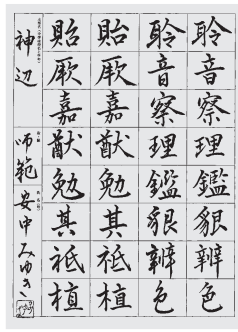 聆音察理鑑貌辨色
聆音察理鑑貌辨色
貽厥嘉猷勉其祗植
貽厥嘉猷勉其祗植
神辺 師範 安中みゆき